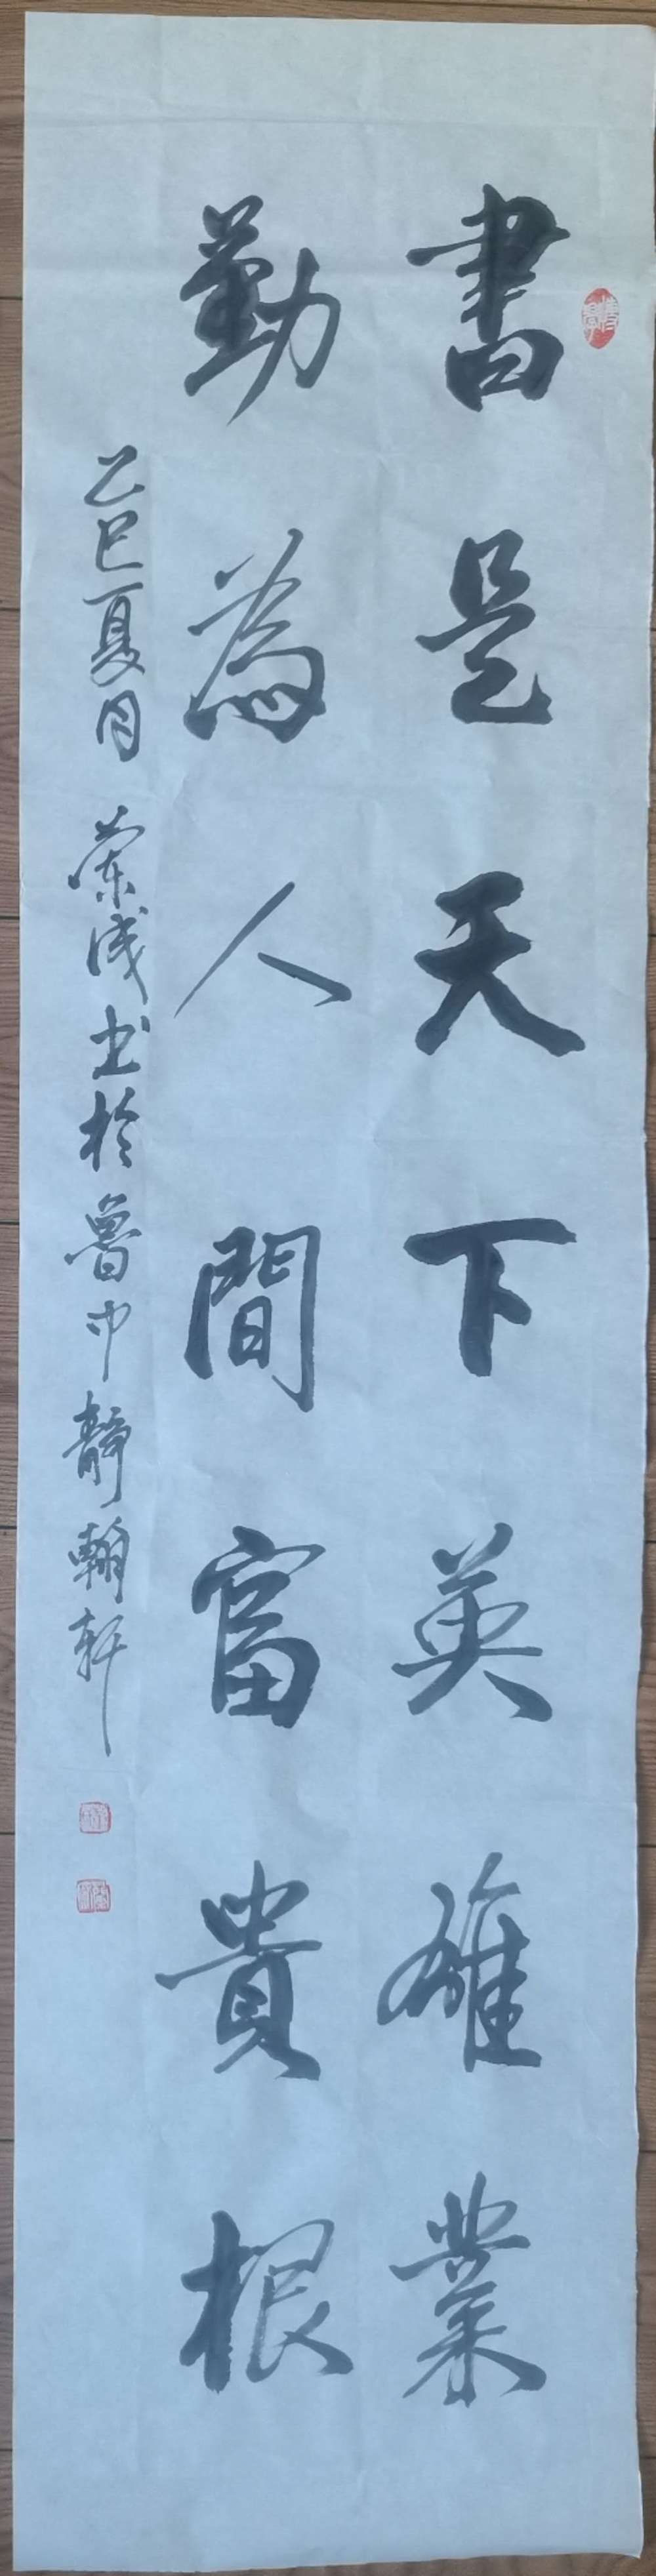 書是天下英雄業
勤為人間富貴根
乙巳夏月 榮成书於魯中靜翰軒